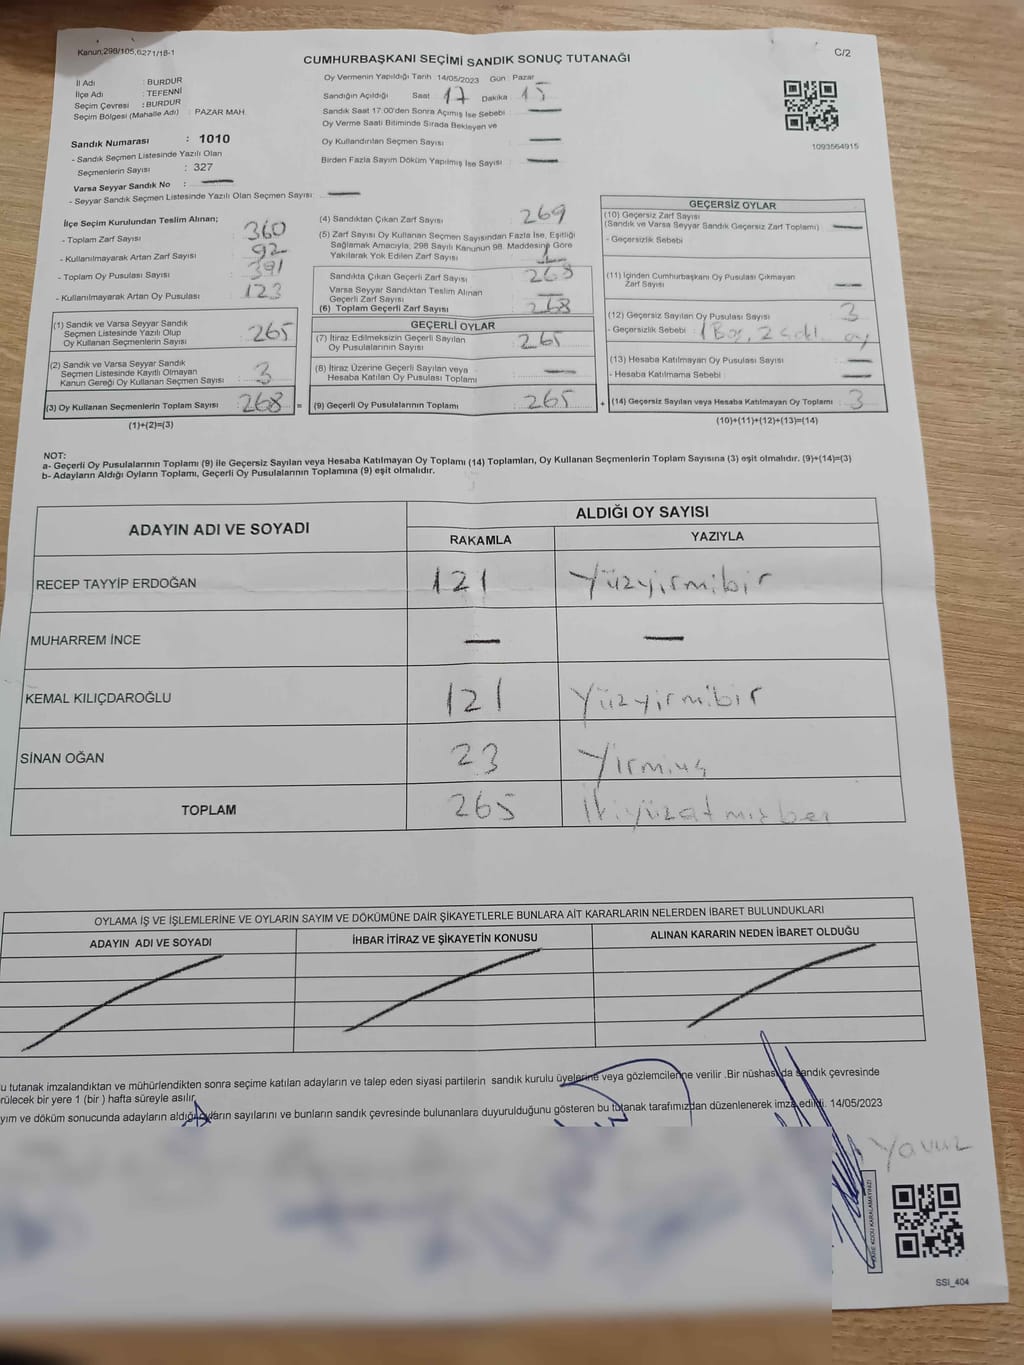 Kanun,298/105,6271/18-1
C/2
CUMHURBAŞKANI SEÇİMİ SANDIK SONUÇ TUTANAĞI
İl Adı : BURDUR
İlçe Adı : TEFENNİ
Seçim Çevresi : BURDUR
Seçim Bölgesi (Mahalle Adı) : PAZAR MAH.
Sandık Numarası : 1010
- Sandık Seçmen Listesinde Yazılı Olan
Seçmenlerin Sayısı : 327
Varsa Seyyar Sandık No : —
- Seyyar Sandık Seçmen Listesinde Yazılı Olan Seçmen Sayısı: —
Oy Vermenin Yapıldığı Tarih 14/05/2023 Gün : Pazar
Sandığın Açıldığı Saat 17 Dakika 15
Sandık Saat 17:00'den Sonra Açılmış İse Sebebi : —
Oy Verme Saati Bitiminde Sırada Bekleyen ve
Oy Kullandırılan Seçmen Sayısı : —
Birden Fazla Sayım Döküm Yapılmış İse Sayısı : —
1093564915
İlçe Seçim Kurulundan Teslim Alınan;
- Toplam Zarf Sayısı : 360
- Kullanılmayarak Artan Zarf Sayısı : 92
- Toplam Oy Pusulası Sayısı : 391
- Kullanılmayarak Artan Oy Pusulası : 123
(1) Sandık ve Varsa Seyyar Sandık
Seçmen Listesinde Yazılı Olup
Oy Kullanan Seçmenlerin Sayısı : 265
(2) Sandık ve Varsa Seyyar Sandık
Seçmen Listesinde Kayıtlı Olmayan
Kanun Gereği Oy Kullanan Seçmen Sayısı : 3
(3) Oy Kullanan Seçmenlerin Toplam Sayısı : 268 =
(1)+(2)=(3)
(4) Sandıktan Çıkan Zarf Sayısı : 269
(5) Zarf Sayısı Oy Kullanan Seçmen Sayısından Fazla İse, Eşitliği
Sağlamak Amacıyla, 298 Sayılı Kanunun 98. Maddesine Göre
Yakılarak Yok Edilen Zarf Sayısı : 1
Sandıkta Çıkan Geçerli Zarf Sayısı : 268
Varsa Seyyar Sandıktan Teslim Alınan
Geçerli Zarf Sayısı : —
(6) Toplam Geçerli Zarf Sayısı : 268
GEÇERLİ OYLAR
(7) İtiraz Edilmeksizin Geçerli Sayılan
Oy Pusulalarının Sayısı : 265
(8) İtiraz Üzerine Geçerli Sayılan veya
Hesaba Katılan Oy Pusulası Toplamı : —
(9) Geçerli Oy Pusulalarının Toplamı : 265 +
GEÇERSİZ OYLAR
(10) Geçersiz Zarf Sayısı
(Sandık ve Varsa Seyyar Sandık Geçersiz Zarf Toplamı) : —
- Geçersizlik Sebebi :
(11) İçinden Cumhurbaşkanı Oy Pusulası Çıkmayan
Zarf Sayısı : —
(12) Geçersiz Sayılan Oy Pusulası Sayısı : 3
- Geçersizlik Sebebi : 1 Boş, 2 oy
(13) Hesaba Katılmayan Oy Pusulası Sayısı : —
- Hesaba Katılmama Sebebi : —
(14) Geçersiz Sayılan veya Hesaba Katılmayan Oy Toplamı : 3
(10)+(11)+(12)+(13)=(14)
NOT:
a- Geçerli Oy Pusulalarının Toplamı (9) ile Geçersiz Sayılan veya Hesaba Katılmayan Oy Toplamı (14) Toplamları, Oy Kullanan Seçmenlerin Toplam Sayısına (3) eşit olmalıdır. (9)+(14)=(3)
b- Adayların Aldığı Oyların Toplamı, Geçerli Oy Pusulalarının Toplamına (9) eşit olmalıdır.
ADAYIN ADI VE SOYADI ALDIĞI OY SAYISI
RAKAMLA YAZIYLA
RECEP TAYYİP ERDOĞAN 121 Yüzyirmibir
MUHARREM İNCE — —
KEMAL KILIÇDAROĞLU 121 Yüzyirmibir
SİNAN OĞAN 23 Yirmiüç
TOPLAM 265 İkiyüzatmışbeş
OYLAMA İŞ VE İŞLEMLERİNE VE OYLARIN SAYIM VE DÖKÜMÜNE DAİR ŞİKAYETLERLE BUNLARA AİT KARARLARIN NELERDEN İBARET BULUNDUKLARI
ADAYIN ADI VE SOYADI İHBAR İTİRAZ VE ŞİKAYETİN KONUSU ALINAN KARARIN NEDEN İBARET OLDUĞU
u tutanak imzalandıktan ve mühürlendikten sonra seçime katılan adayların ve talep eden siyasi partilerin sandık kurulu üyelerine veya gözlemcilerine verilir .Bir nüshası da sandık çevresinde
rülecek bir yere 1 (bir ) hafta süreyle asılır.
yım ve döküm sonucunda adayların aldığı oyların sayılarını ve bunların sandık çevresinde bulunanlara duyurulduğunu gösteren bu tutanak tarafımızdan düzenlenerek imza edildi. 14/05/2023
Yavuz
KARE KODU KARALAMAYINIZ!
SSI_404